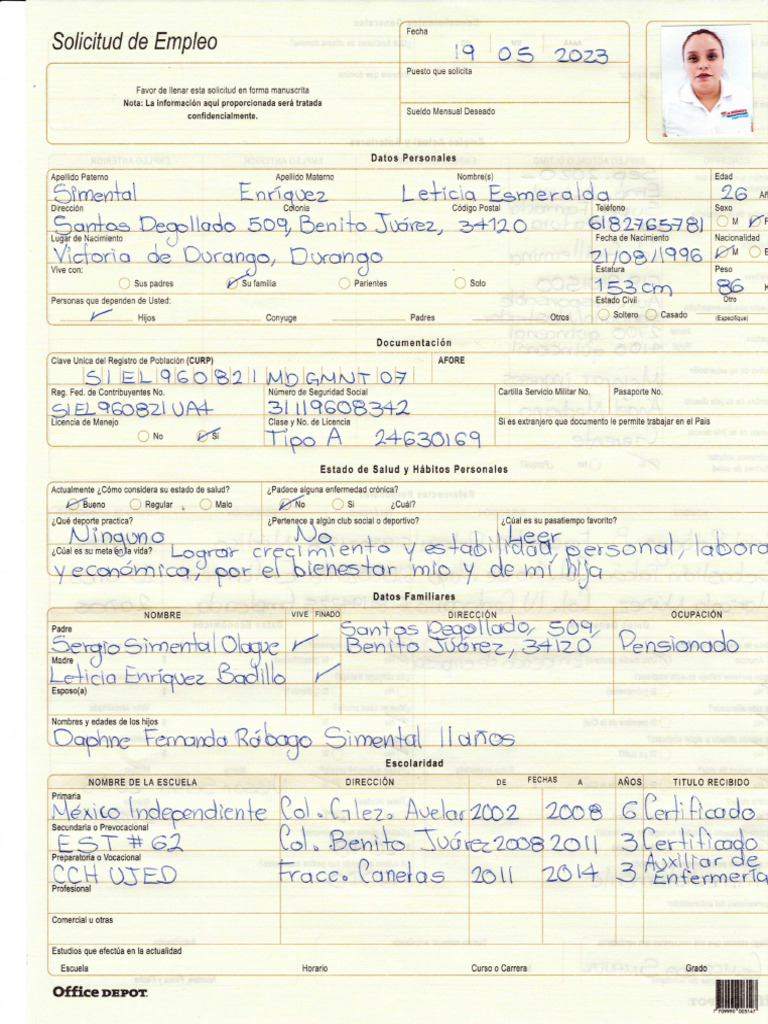 Solicitud de Empleo
Favor de llenar esta solicitud en forma manuscrita
Nota: La información aquí proporcionada será tratada
confidencialmente.
Fecha
19 05 2023
Puesto que solicita
Sueldo Mensual Deseado
Datos Personales
Apellido Paterno Apellido Materno Nombre(s) Edad
Simental Enríquez Leticia Esmeralda 26
Dirección Colonia Código Postal Teléfono Sexo
Santos Degollado 509, Benito Juárez, 34120 6182765781 M F
Lugar de Nacimiento Fecha de Nacimiento Nacionalidad
Victoria de Durango, Durango 21/08/1996 M E
Vive con: Estatura Peso
Sus padres Su familia Parientes Solo 153 cm 86 K
Personas que dependen de Usted: Estado Civil Otro
Hijos Conyuge Padres Otros Soltero Casado (Especifique)
Documentación
Clave Unica del Registro de Población (CURP) AFORE
SIEL960821MDGMNT07
Reg. Fed. de Contribuyentes No. Número de Seguridad Social Cartilla Servicio Militar No. Pasaporte No.
SIEL960821UA4 31119608342
Licencia de Manejo Clase y No. de Licencia Si es extranjero que documento le permite trabajar en el Pais
No Si Tipo A 24630169
Estado de Salud y Hábitos Personales
Actualmente ¿Cómo considera su estado de salud? ¿Padece alguna enfermedad crónica?
Bueno Regular Malo No Si ¿Cuál?
¿Qué deporte practica? ¿Pertenece a algún club social o deportivo? ¿Cuál es su pasatiempo favorito?
Ninguno No Leer
¿Cuál es su meta en la vida? Lograr crecimiento y estabilidad personal, labora
y económica, por el bienestar mio y de mi hija
Datos Familiares
NOMBRE VIVE FINADO DIRECCIÓN OCUPACIÓN
Padre
Sergio Simental Olague Santos Degollado, 509, Benito Juárez, 34120 Pensionado
Madre
Leticia Enríquez Badillo
Esposo(a)
Nombres y edades de los hijos
Daphne Fernanda Rábago Simental 11 años
Escolaridad
NOMBRE DE LA ESCUELA DIRECCIÓN DE FECHAS A AÑOS TITULO RECIBIDO
Primaria
México Independiente Col. Glez. Avelar 2002 2008 6 Certificado
Secundaria o Prevocacional
EST # 62 Col. Benito Juárez 2008 2011 3 Certificado
Preparatoria o Vocacional
CCH UJED Fracc. Canelas 2011 2014 3 Auxiliar de Enfermería
Profesional
Comercial u otras
Estudios que efectúa en la actualidad
Escuela Horario Curso o Carrera Grado
Office DEPOT